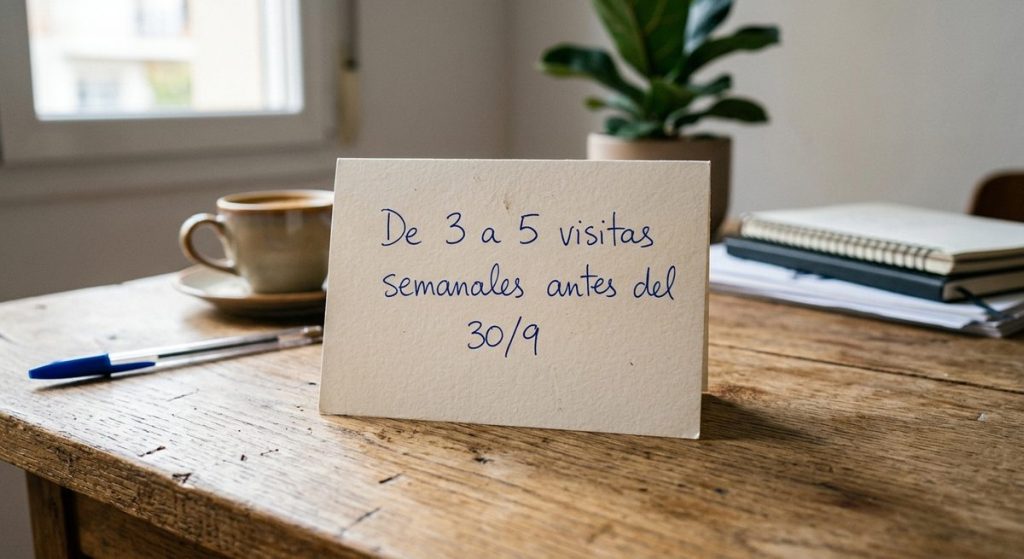 De 3 a 5 visitas
semanales antes del
30/9